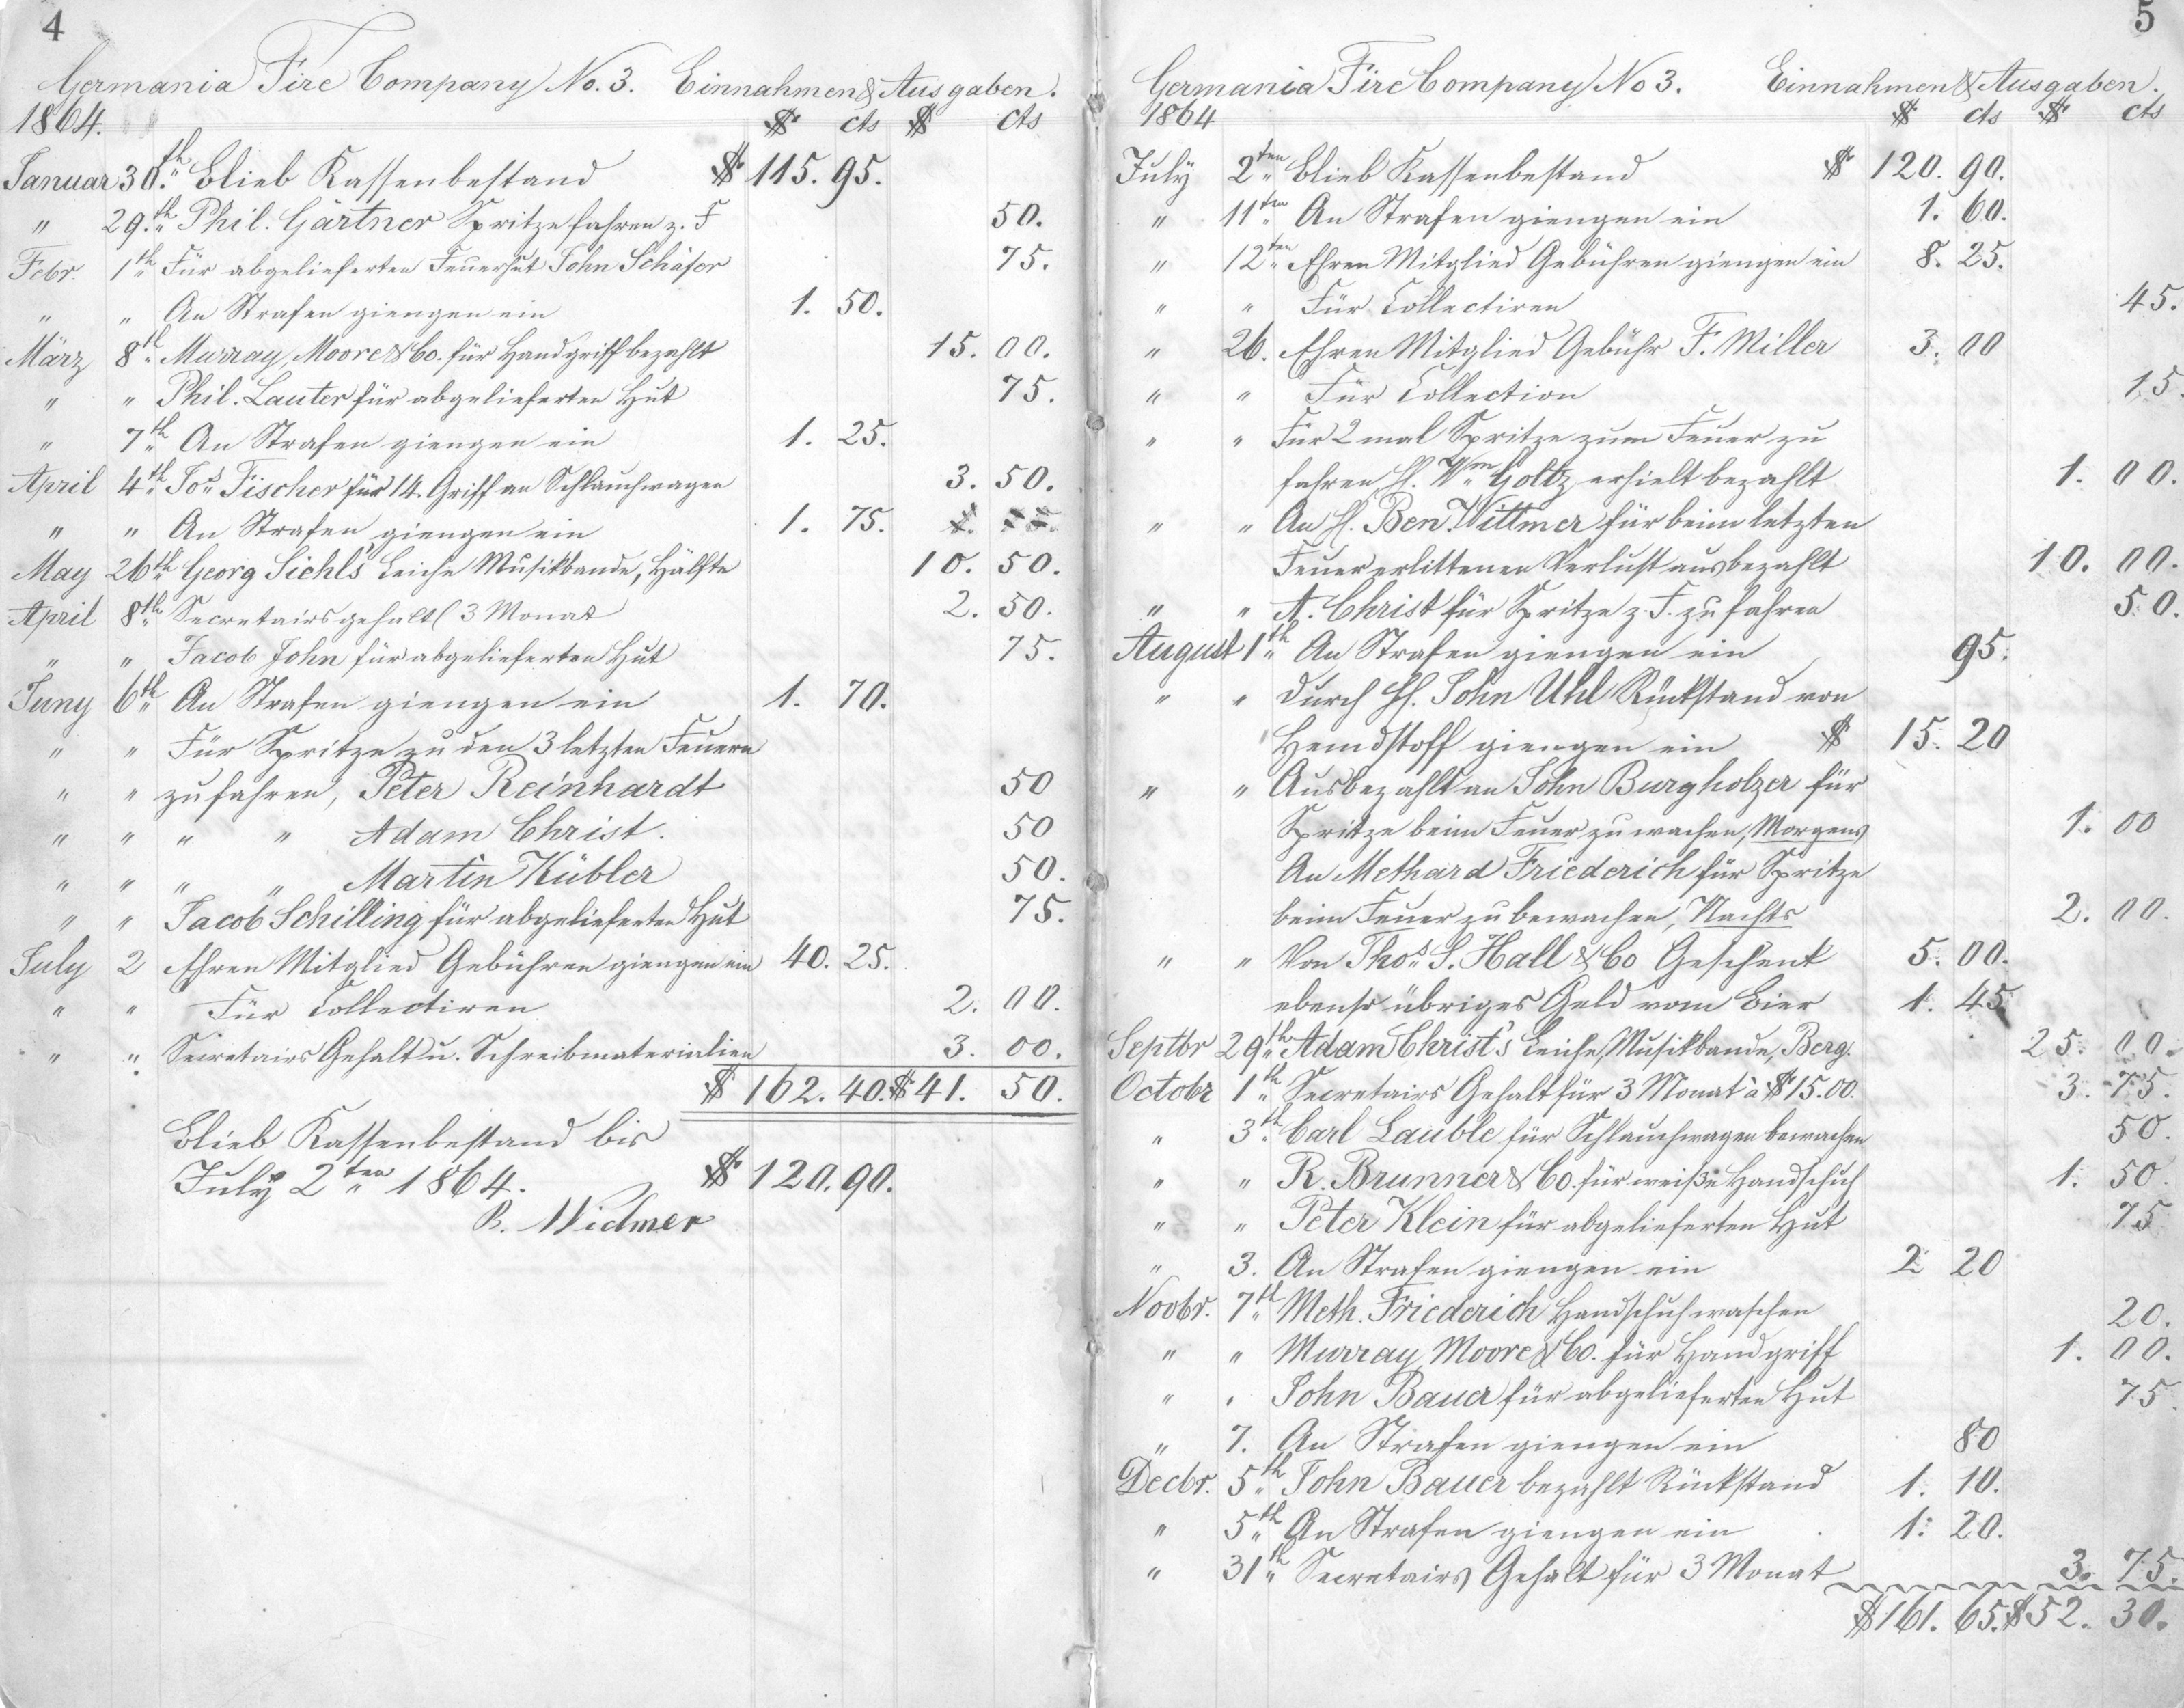 4
Germania Fire Company No. 3. Einnahmen & Ausgaben.
1864. $ cts $ cts
Januar 30.th Blieb Kassenbestand $ 115. 95.
" 29.th Phil. Gärtner Spritze fahren z. F 50.
Febr. 1th Für abgelieferten Feuerhut John Schäfer 75.
" " An Strafen giengen ein 1. 50.
März 8th Murray, Moore & Co. für Handgriff bezahlt 15. 00.
" " Phil. Lauter für abgelieferten Hut 75.
" 7th An Strafen giengen ein 1. 25.
April 4th Jos. Fischer für 14. Griff an Schlauchwagen 3. 50.
" " An Strafen giengen ein 1. 75.
May 26th Georg Siehl's Leiche Musikbande, Hälfte 10. 50.
April 8th Secretairs gehalt ( 3 Monat 2. 50.
" " Jacob John für abgelieferten Hut 75.
Juny 6th An Strafen giengen ein 1. 70.
" " Für Spritze zu den 3 letzten Feuern
" " zu fahren, Peter Reinhardt 50
" " " " Adam Christ. 50
" " " " Martin Kübler 50.
" " Jacob Schilling für abgelieferten Hut 75.
July 2 Ehren Mitglied Gebühren giengen ein 40. 25.
" " Für Collectiren 2. 00.
" " Secretairs Gehalt u. Schreibmaterialien 3. 00.
$ 162. 40. $ 41. 50.
Blieb Kassenbestand bis
July 2ten 1864. $ 120. 90.
B. Widmer
5
Germania Fire Company No 3. Einnahmen & Ausgaben.
1864 $ cts $ cts
July 2ten Blieb Kassenbestand $ 120. 90.
" 11ten An Strafen giengen ein 1. 60.
" 12ten Ehren Mitglied Gebühren giengen ein 8. 25.
" " Für Collectiren 45.
" 26. Ehren Mitglied Gebühr F. Miller 3. 00
" " Für Collection 15.
" " Für 2 mal Spritze zum Feuer zu
fahren H. Wm Goltz erhielt bezahlt 1. 00.
" " An H. Ben. Wittmer für beim letzten
Feuer erlittenen Verlust ausbezahlt 10. 00.
" " A. Christ für Spritze z. F. zu fahren 50.
August 1th An Strafen giengen ein 95.
" " durch H. John Uhl Rückstand von
Hemdstoff giengen ein $ 15. 20
" " Ausbezahlt an John Burgholzer für
Spritze beim Feuer zu wachen, Morgens 1. 00
An Methard Friederich für Spritze
beim Feuer zu bewachen, Nachts 2. 00.
" " Von Thos. S. Hall & Co Geschenk 5. 00.
ebenso übriges Geld vom Bier 1. 45
Septbr 29th Adam Christ's Leiche, Musikbande, Berg. 25. 00.
Octobr 1th Secretairs Gehalt für 3 Monat à $15.00. 3. 75.
" 3th Carl Lauble für Schlauchwagen bewachen 50.
" " R. Brunner & Co. für weiße Handschuh 1. 50.
" " Peter Klein für abgelieferten Hut 75
" 3. An Strafen giengen ein 2 20
Novbr. 7th Meth. Friederich Handschuh waschen 20.
" " Murray, Moore & Co. für Handgriff 1. 00.
" " John Bauer für abgelieferten Hut 75.
" 7. An Strafen giengen ein 80
Decbr. 5th John Bauer bezahlt Rückstand 1. 10.
" 5th An Strafen giengen ein 1. 20.
" 31th Secretairs Gehalt für 3 Monat 3. 75.
$161. 65. $52. 30.